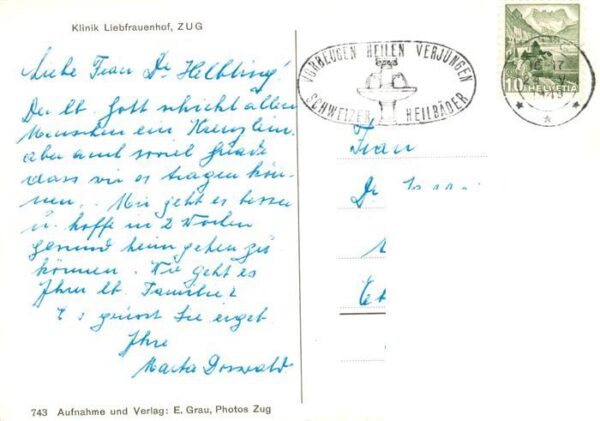 Klinik Liebfrauenhof, ZUG
Liebe Frau Dr. Helbling!
Der lb. Gott schickt allen
Menschen ein Kreuzlein,
aber auch soviel Gnade
dass wir es tragen kön-
nen. Mir geht es besser
u. hoffe in 2 Wochen
gesund heim gehen zu
können. Wie geht es
Ihrer lb. Familie?
Es grüsst Sie ergeb.
Ihre
Marta Dosswald
743 Aufnahme und Verlag: E. Grau, Photos Zug
VORBEUGEN HEILEN VERJÜNGEN
SCHWEIZER HEILBÄDER
10 HELVETIA
Frau
Dr